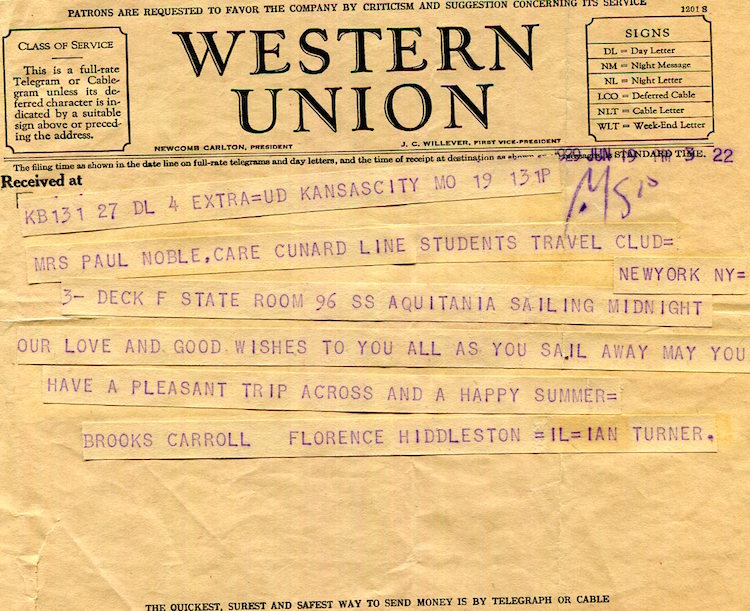 PATRONS ARE REQUESTED TO FAVOR THE COMPANY BY CRITICISM AND SUGGESTION CONCERNING ITS SERVICE
1201 S
CLASS OF SERVICE
This is a full-rate
Telegram or Cable-
gram unless its de-
ferred character is in-
dicated by a suitable
sign above or preced-
ing the address.
WESTERN
UNION
NEWCOMB CARLTON, PRESIDENT
J. C. WILLEVER, FIRST VICE-PRESIDENT
SIGNS
DL = Day Letter
NM = Night Message
NL = Night Letter
LCO = Deferred Cable
NLT = Cable Letter
WLT = Week-End Letter
The filing time as shown in the date line on full-rate telegrams and day letters, and the time of receipt at destination as shown STANDARD TIME.
JUN 19 PM 3 22
Received at
KB131 27 DL 4 EXTRA=UD KANSASCITY MO 19 131P
MRS PAUL NOBLE, CARE CUNARD LINE STUDENTS TRAVEL CLUD=
NEWYORK NY=
3- DECK F STATE ROOM 96 SS AQUITANIA SAILING MIDNIGHT
OUR LOVE AND GOOD WISHES TO YOU ALL AS YOU SAIL AWAY MAY YOU
HAVE A PLEASANT TRIP ACROSS AND A HAPPY SUMMER=
BROOKS CARROLL FLORENCE HIDDLESTON =IL=IAN TURNER.
THE QUICKEST, SUREST AND SAFEST WAY TO SEND MONEY IS BY TELEGRAPH OR CABLE